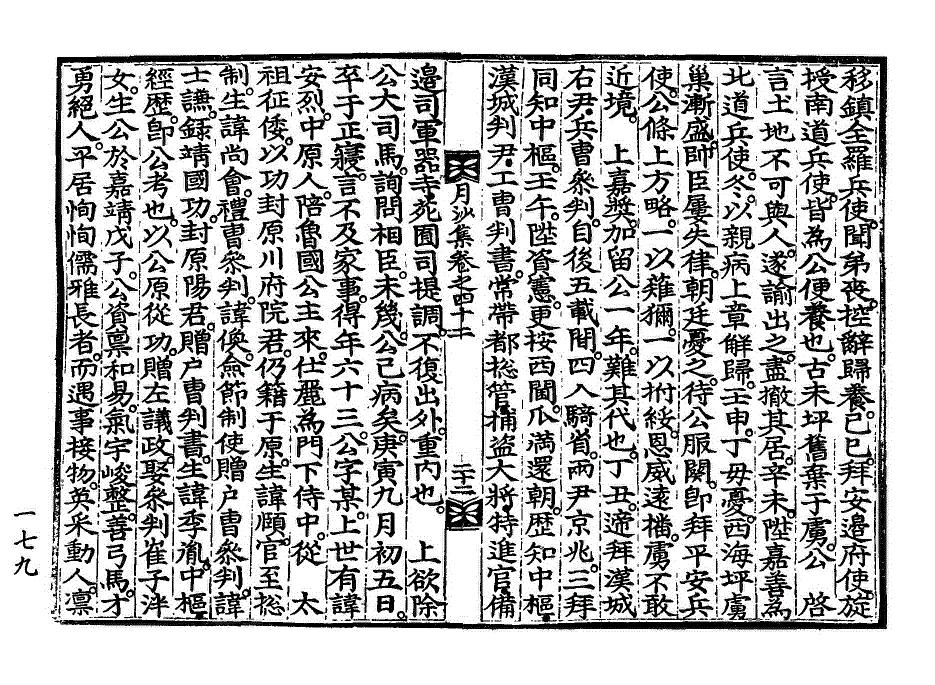 移鎭全羅兵使。聞弟喪。控辭歸養。己巳。拜安邊府使。旋
授南道兵使。皆爲公便養也。古未坪舊棄于虜。公 啓
言土地不可與人。遂諭出之。盡撤其居。辛未。陞嘉善爲
北道兵使。冬。以親病上章解歸。壬申。丁毋憂。西海坪虜
巢漸盛。帥臣屢失律。朝廷憂之。待公服闋。卽拜平安兵
使。公條上方略。一以薙獮。一以拊綏。恩威遠播。虜不敢
近境。 上嘉奬。加留公一年。難其代也。丁丑。遞拜漢城
右尹,兵曹參判。自後五載間。四入騎省。兩尹京兆。三拜
同知中樞。壬午。陞資憲。更按西閫。瓜滿還朝。歷知中樞,
漢城判尹,工曹判書。常帶都摠管,捕盜大將,特進官,備
月沙集卷之四十二
二十三
邊司,軍器寺,苑囿司提調。不復出外。重內也。 上欲除
公大司馬。詢問相臣。未幾。公已病矣。庚寅九月初五日。
卒于正寢。言不及家事。得年六十三。公字某。上世有諱
安烈。中原人。陪魯國公主來。仕麗爲門下侍中。從 太
祖征倭。以功封原川府院君。仍籍于原。生諱顧。官至摠
制。生諱尙會。禮曹參判。諱㒇。僉節制使贈戶曹參判。諱
士讌。錄靖國功。封原陽君。贈戶曹判書。生諱季胤。中樞
經歷。卽公考也。以公原從功。贈左議政。娶參判崔子泮
女。生公於嘉靖戊子。公資稟和易。氣宇峻整。善弓馬。才
勇絶人。平居恂恂儒雅長者。而遇事接物。英采動人。凛
一七九